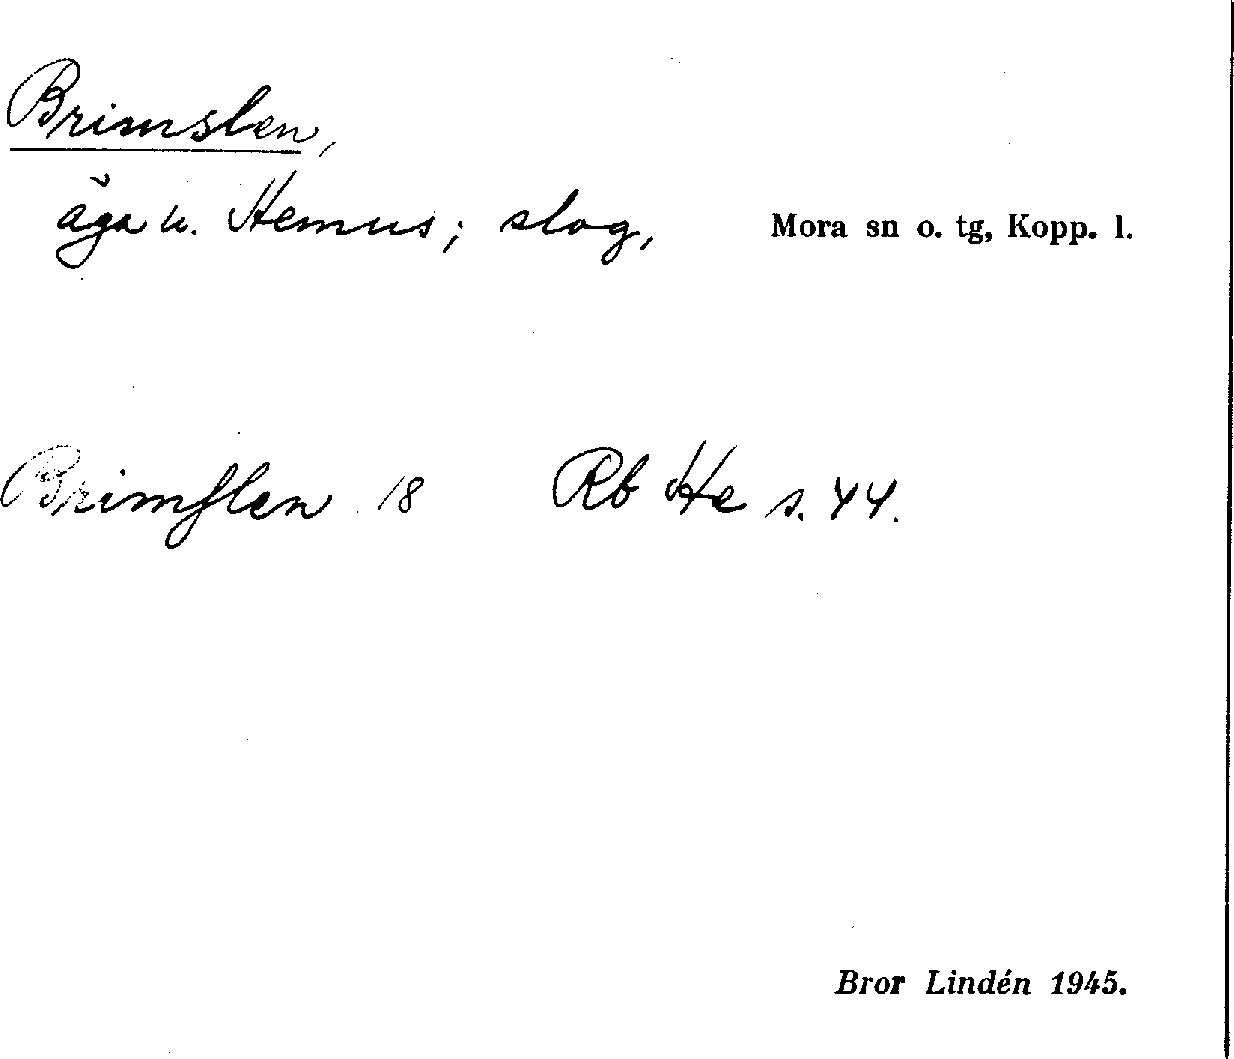 Brimslen,
äga u. Hemus; slog, Mora sn o. tg, Kopp. l.
Brimſlen 18 Rb He s. 44.
Bror Lindén 1945.